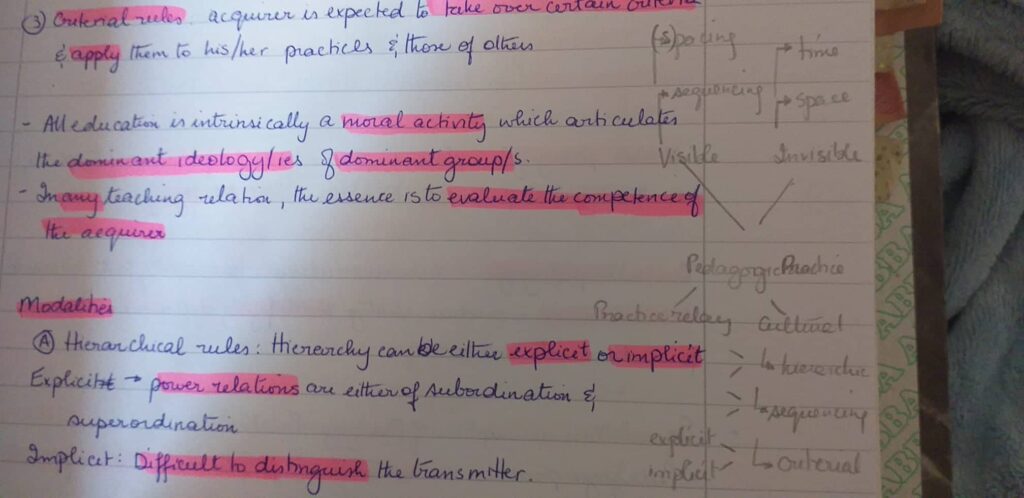 ③ Criterial rules: acquirer is expected to take over certain criteria
& apply them to his/her practices & those of others
- All education is intrinsically a moral activity which articulates
the dominant ideology/ies of dominant group/s.
- In any teaching relation, the essence is to evaluate the competence of
the acquirer
Modalities
Ⓐ Hierarchical rules: Hierarchy can be either explicit or implicit
Explicit → power relations are either of subordination &
superordination
Implicit: Difficult to distinguish the transmitter.
(s)pacing
→ time
→ sequencing
→ space
Visible Invisible
Pedagorgic Practice
Practice relay Cultural
hierarchic
sequencing
explicit
implicit
criterial
ABBA